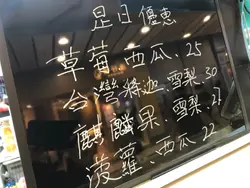 是日優惠
草莓.西瓜.25
台灣釋迦.雪梨.30
麒麟果.雪梨.27
菠蘿.西瓜22